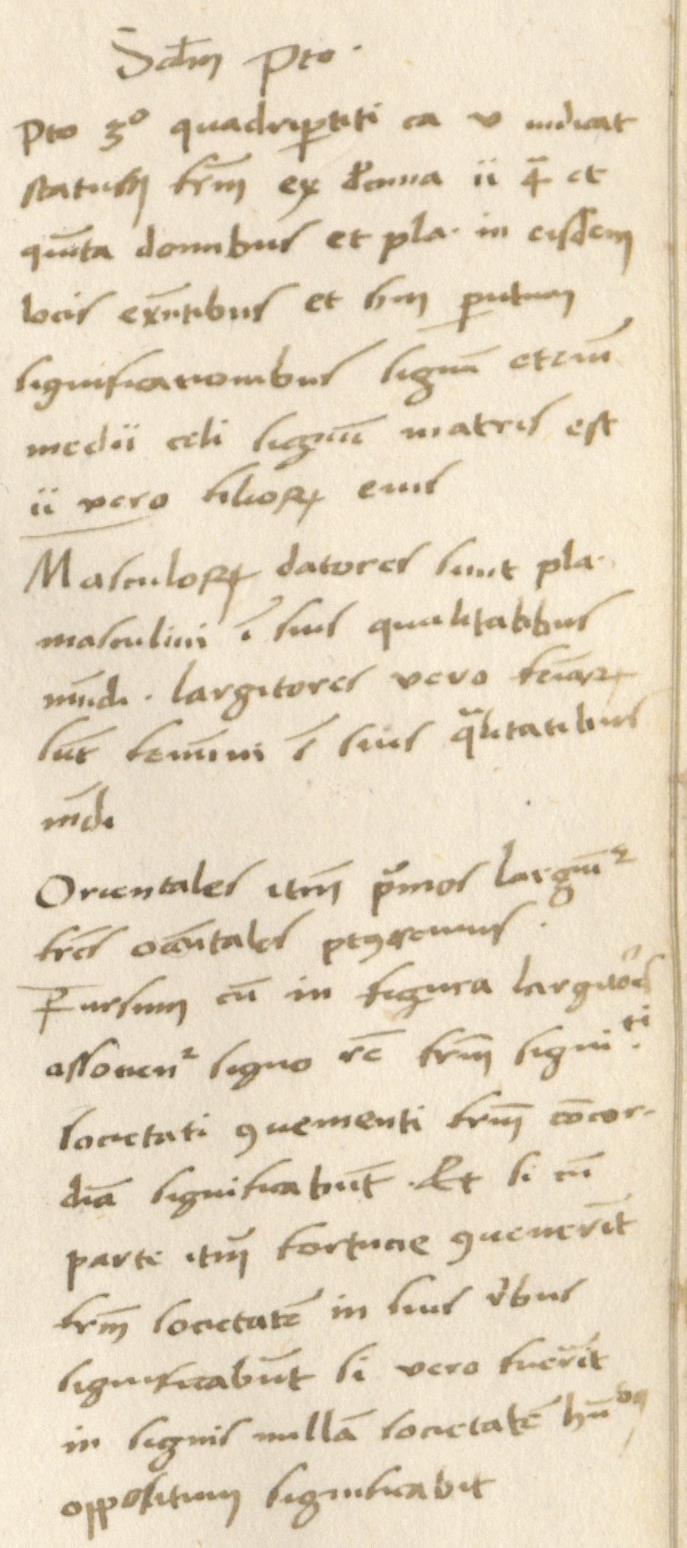 Scdm Pto.
Pto 3º quadriptiti ca v iudicat
statum frm ex decima ii 4ª et
quīta domibus et pla. in eisdem
locis exntibus et scm
significationibus signū etenī
medii celi signū matris est
ii vero filioꝝ eius
Masculoꝝ datores sunt pla.
masculini ī suis qualitatibus
mūdi. largitores vero femīaꝝ
sūt feminini ī suis qlitatibus
mūdi
Orientales itm pͥmos largiūᵗ
frēs occītales ptꝯgenitus.
Rursum cū in figura largitores
associenᵗ signo rē frm signiᵗⁱ.
societati ꝯuenienti frm cōcor-
diā significabūt. Et si cū
parte itm fortune ꝯuenerīt
frm societatē in suis rͤbus
significabūt si vero fuerīt
in signis nullā societatē hūᵗⁱᵇꝫ
oppositum significabit